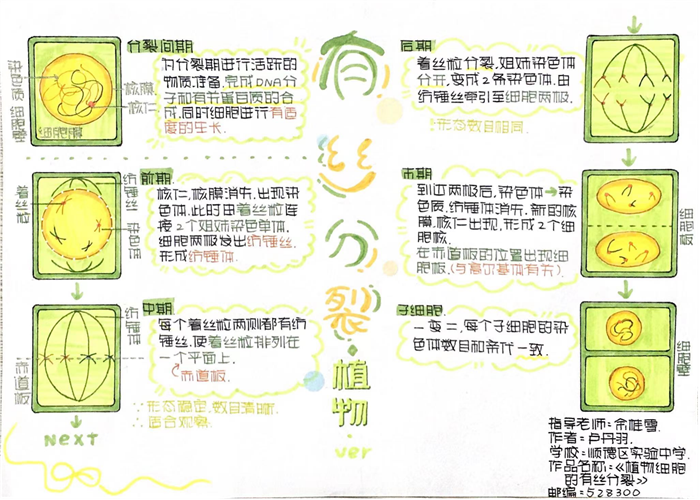 有丝分裂
·植物·
ver
分裂间期
为分裂期进行活跃的
物质准备,完成DNA分
子和有关蛋白质的合
成,同时细胞进行有适
度的生长.
染色质
细胞壁
核膜
核仁
细胞膜
前期
核仁,核膜消失,出现染
色体,此时由着丝粒连
接2个姐妹染色单体.
细胞两极发出纺锤丝,
形成纺锤体.
着丝粒
纺锤丝
染色体
中期
每个着丝粒两侧都有纺
锤丝,使着丝粒排列在
一个平面上.
赤道板.
∵形态稳定,数目清晰.
∴适合观察.
纺锤体
赤道板
NEXT
后期
着丝粒分裂,姐妹染色体
分开,变成2条染色体.由
纺锤丝牵引至细胞两极.
形态数目相同.
末期
到达两极后,染色体→染
色质,纺锤体消失,新的核
膜,核仁出现,形成2个细
胞核.
在赤道板的位置出现细
胞板.(与高尔基体有关)
细胞板
子细胞
一变二,每个子细胞的染
色体数目和亲代一致.
细胞壁
指导老师:余桂雪.
作者:卢丹羽.
学校:顺德区实验中学.
作品名称:《植物细胞
的有丝分裂》
邮编:528300